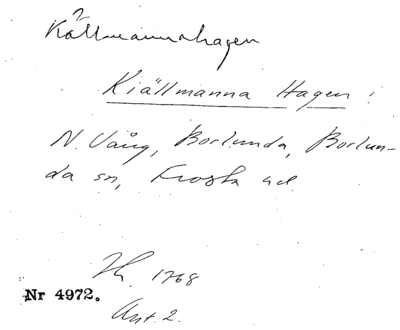 Källmannahagen
Kiällmanna Hagen:
N. Vång, Borlunda, Borlun-
da sn, Frosta hd
1768
Nr 4972.
Akt. 2.